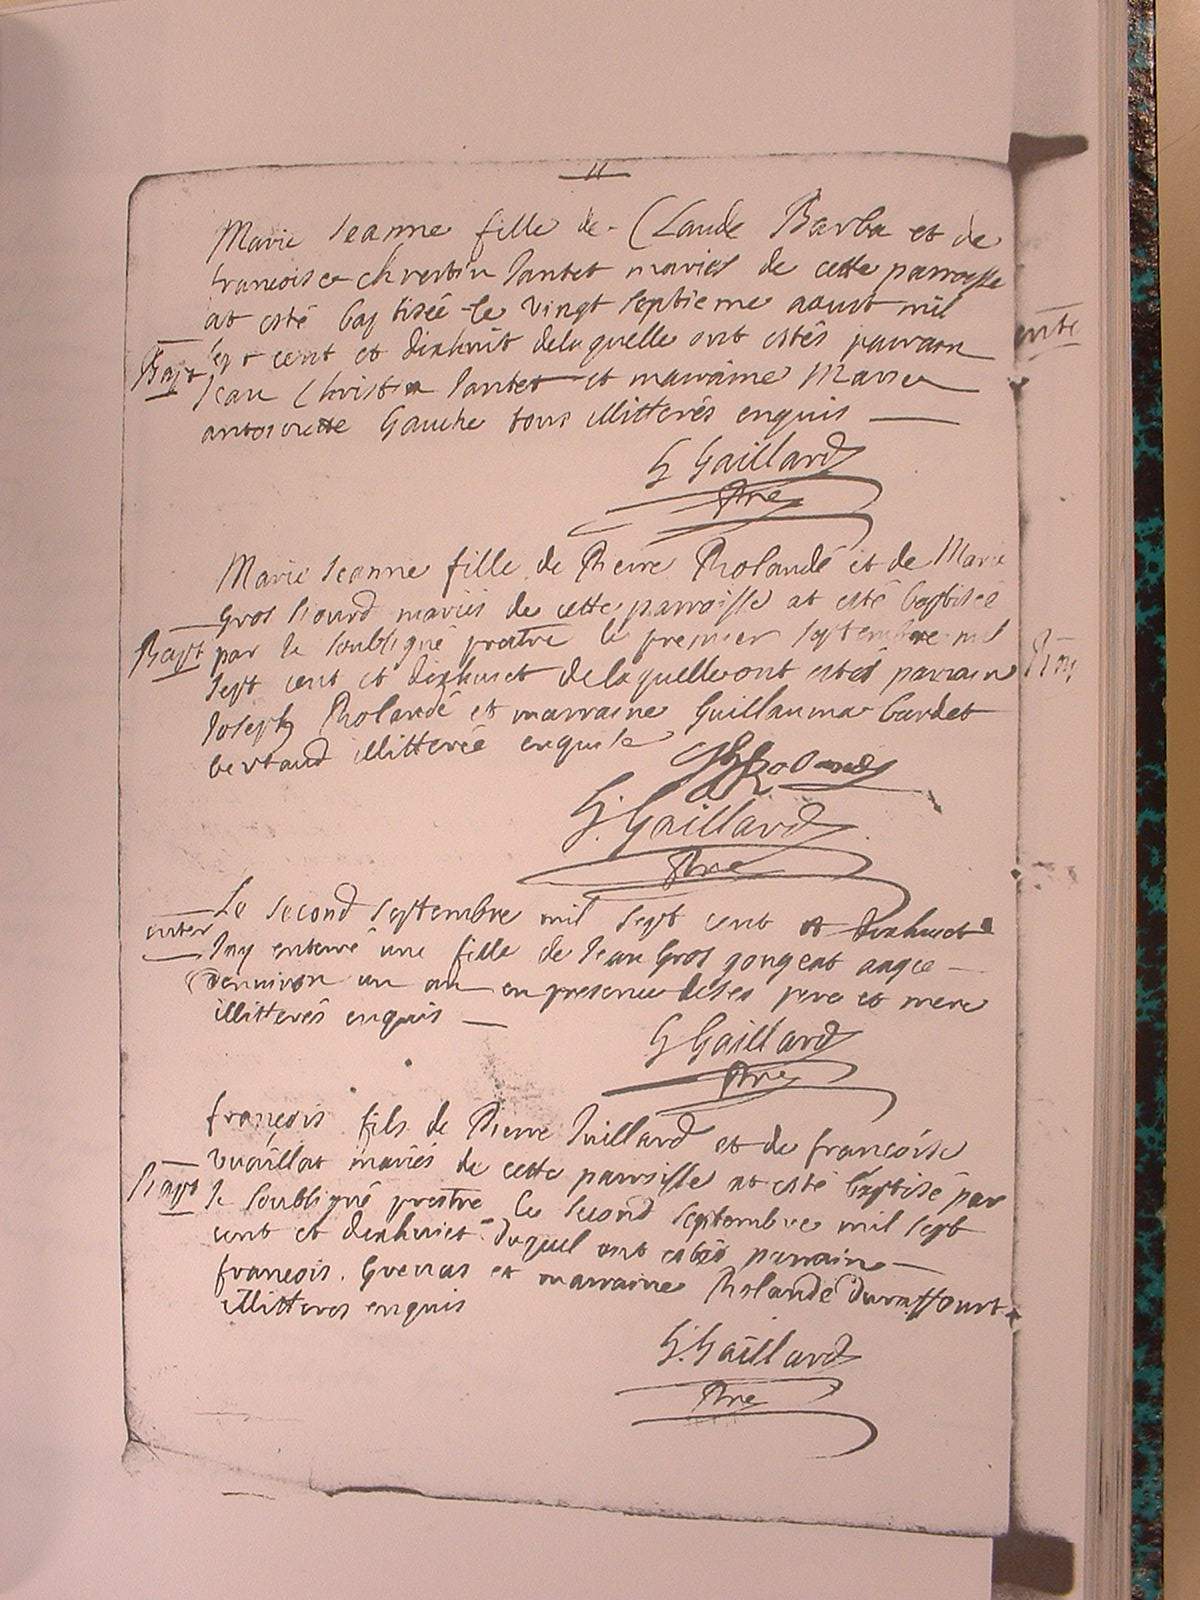 11
Marie Jeanne fille de Claude Barba et de
francoise chrestin Jantet mariés de cette parroisse
at esté baptisée le vingt septieme aoust mil
Bapt
sept cent et dixhuit delaquelle ont estés parrain
Jean Christin Jantet et marraine Marie
antoinette Gauche tous illitterés enquis
G Gaillard
Pbre
Marie Jeanne fille de Pierre Rolandé et de Marie
Gros mariés de cette parroisse at esté baptisée
Bapt
par le soubsigné prestre le premier septembre mil
sept cent et dixhuict delaquelle ont estés parrain
Joseph Rolandé et marraine Guillauma Cardet
bertaud illitterée enquise
Rolandé
G. Gaillard
Pbre
Le second septembre mil sept cent et dixhuict
enter
Jay enterré une fille de Jean Gros gongeat aagée
denviron un an en presence de ses pere et mere
illitterés enquis
G Gaillard
Pbre
françois fils de Pierre Juillard et de françoise
Vuaillat mariés de cette parroisse at esté baptisé par
Bapt
le soubsigné prestre le second septembre mil sept
cent et dixhuict duquel ont estés parrain
françois Grenas et marraine Rolandé duraffourt
illitteres enquis
G. Gaillard
Pbre